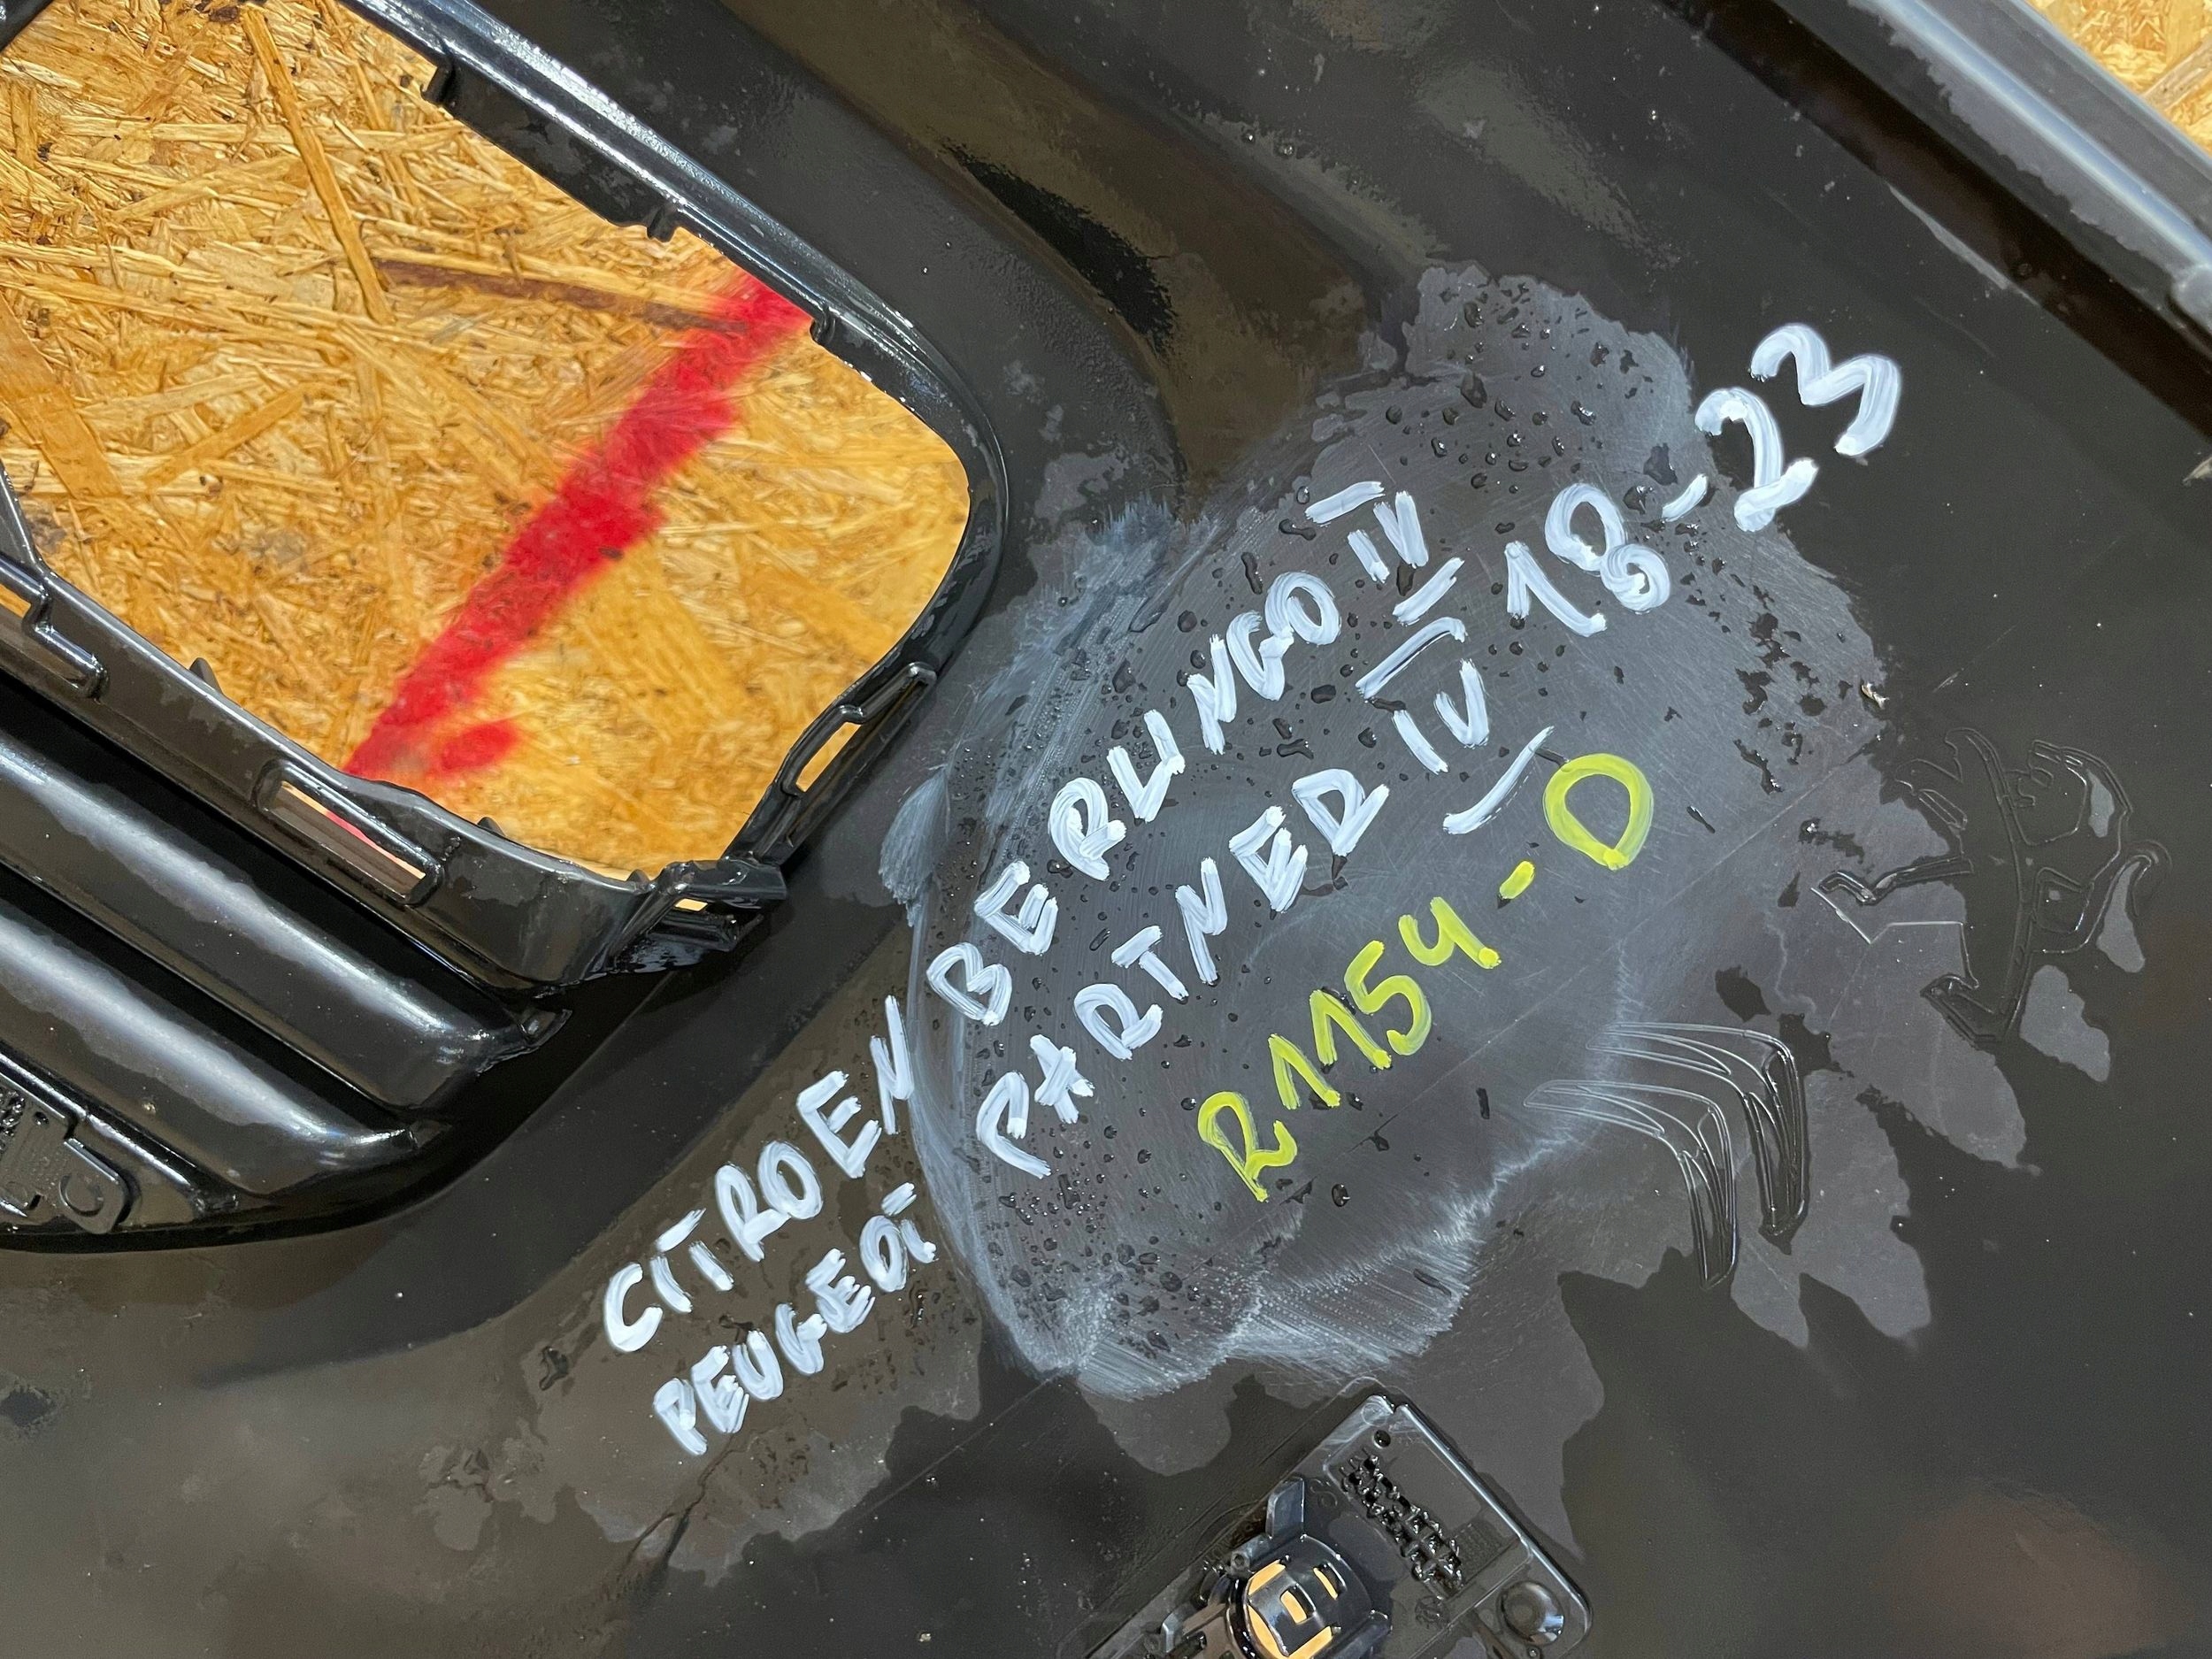 CITROEN BERLINGO IV
PEUGEOT PARTNER IV 18-23
R1154-D